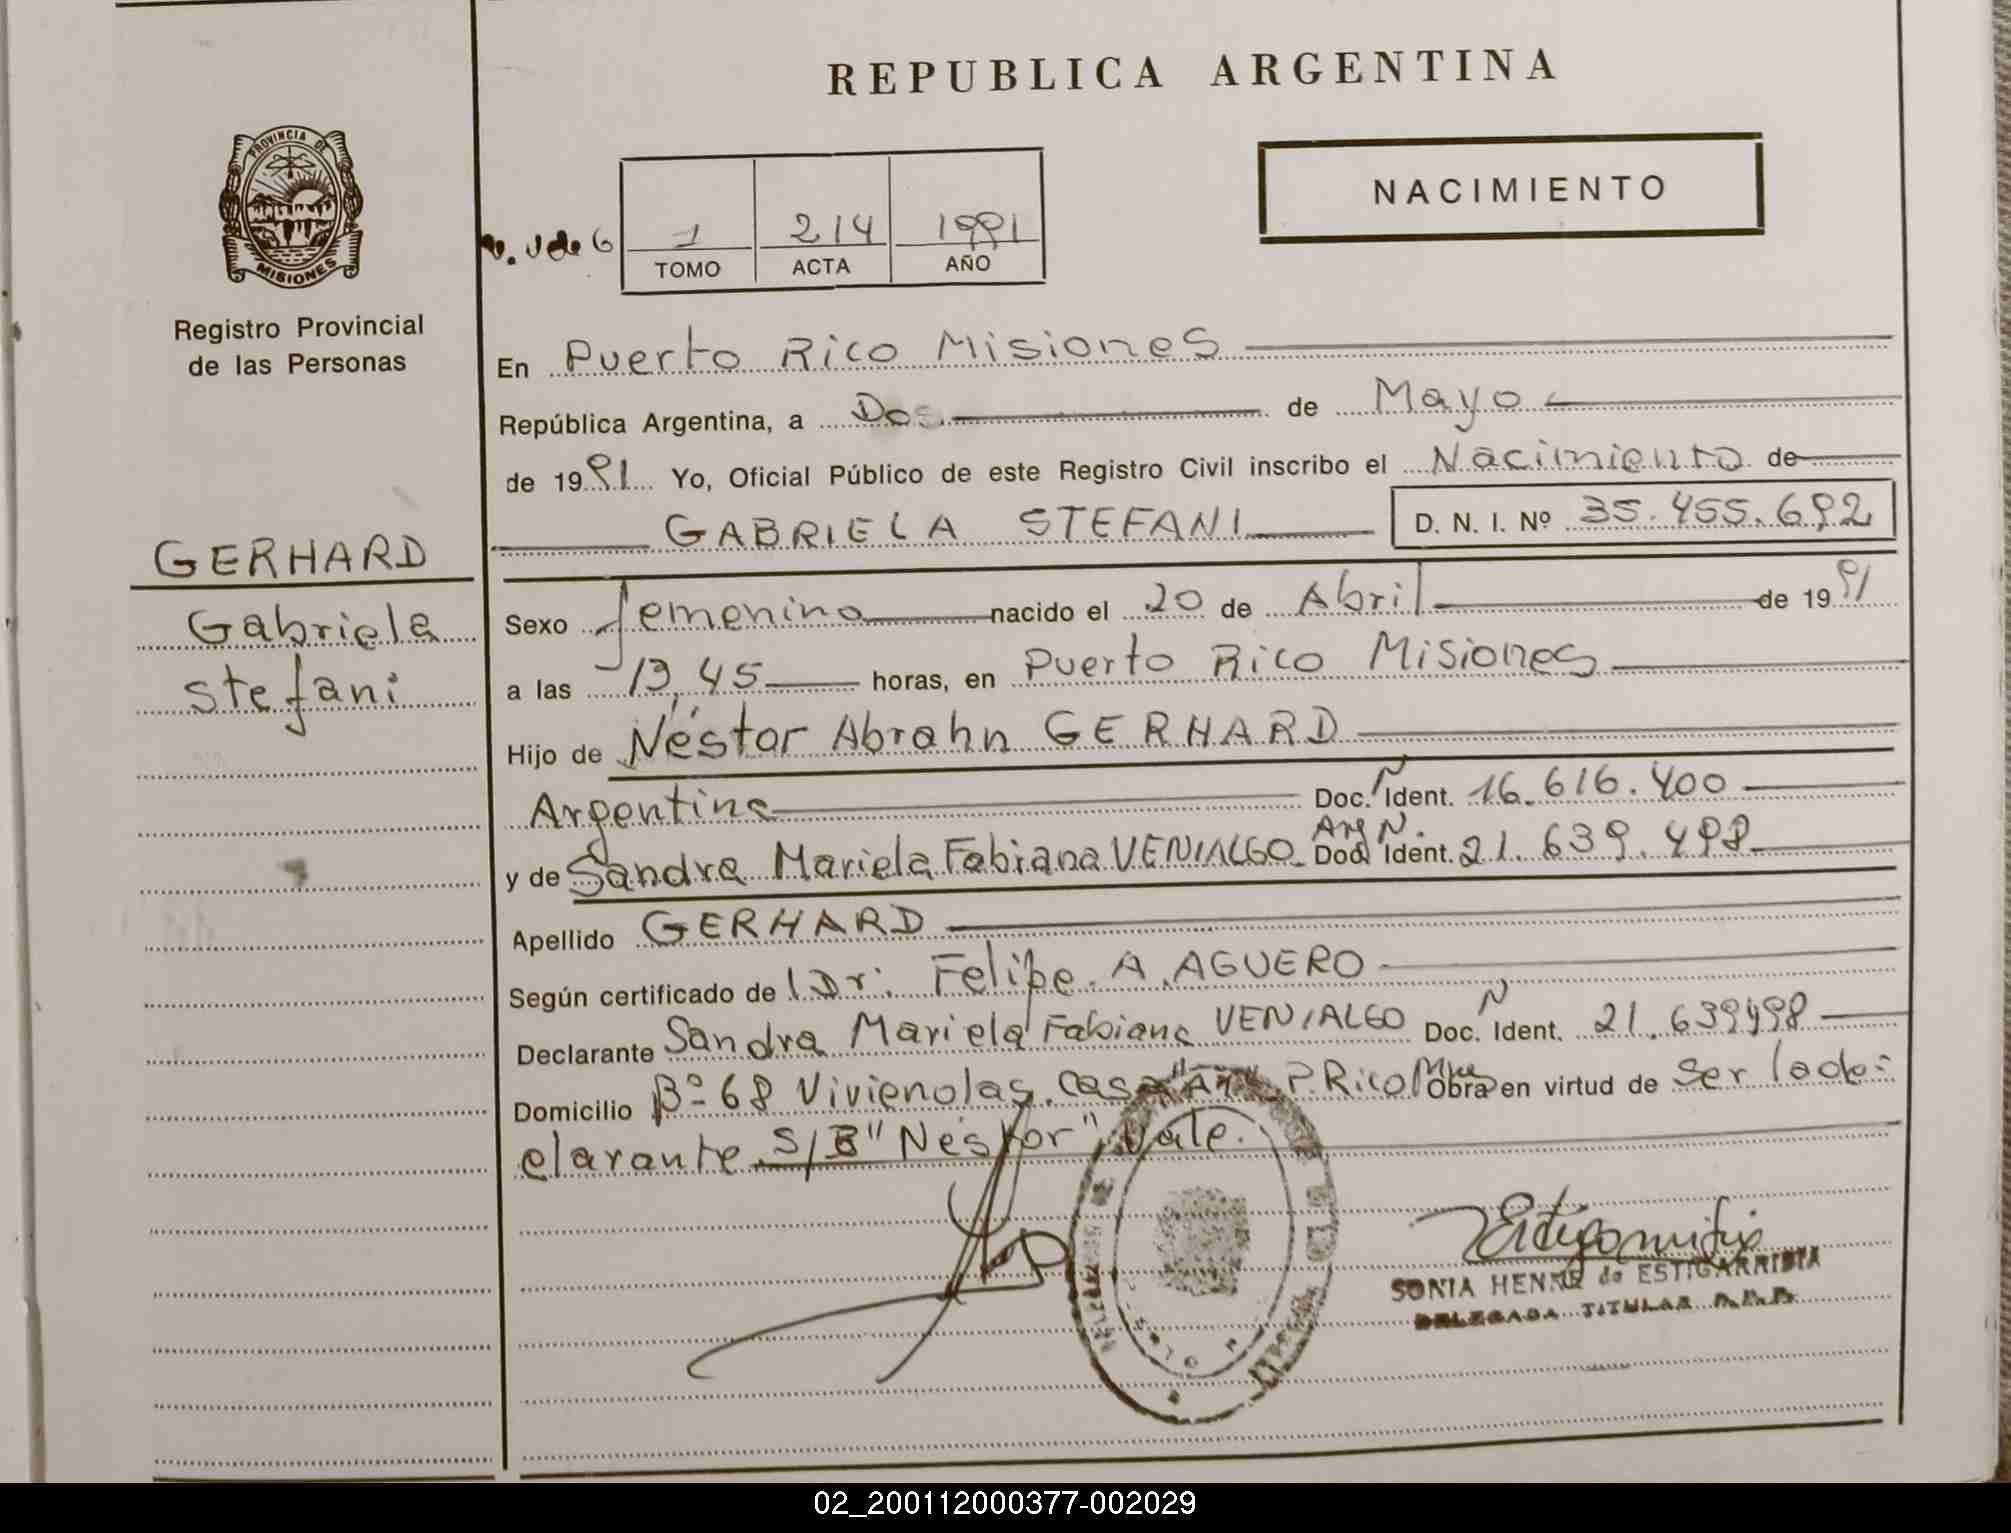 REPUBLICA ARGENTINA
PROVINCIA DE
MISIONES
Registro Provincial
de las Personas
NACIMIENTO
1 214 1991
TOMO ACTA AÑO
En Puerto Rico Misiones
República Argentina, a Dos de Mayo
de 1991 Yo, Oficial Público de este Registro Civil inscribo el Nacimiento de
GABRIELA STEFANI D. N. I. Nº 35.455.692
GERHARD
Gabriela
Stefani
Sexo femenino nacido el 20 de Abril de 1991
a las 13,45 horas, en Puerto Rico Misiones
Hijo de Néstor Abrahn GERHARD
Argentina Doc. N Ident. 16.616.400
y de Sandra Mariela Fabiana VENIALGO Arg N. Doc. Ident. 21.639.498
Apellido GERHARD
Según certificado de l Dr. Felipe A. AGUERO
Declarante Sandra Mariela Fabiana VENIALGO Doc. N Ident. 21.639498
Domicilio Bº 68 Viviendas. Casa P. Rico Mnes Obra en virtud de ser la de=
clarante S/B "Néstor" Vale.
SONIA HENNE de ESTIGARRIBIA
DELEGADA TITULAR R.P.P.
02_200112000377-002029